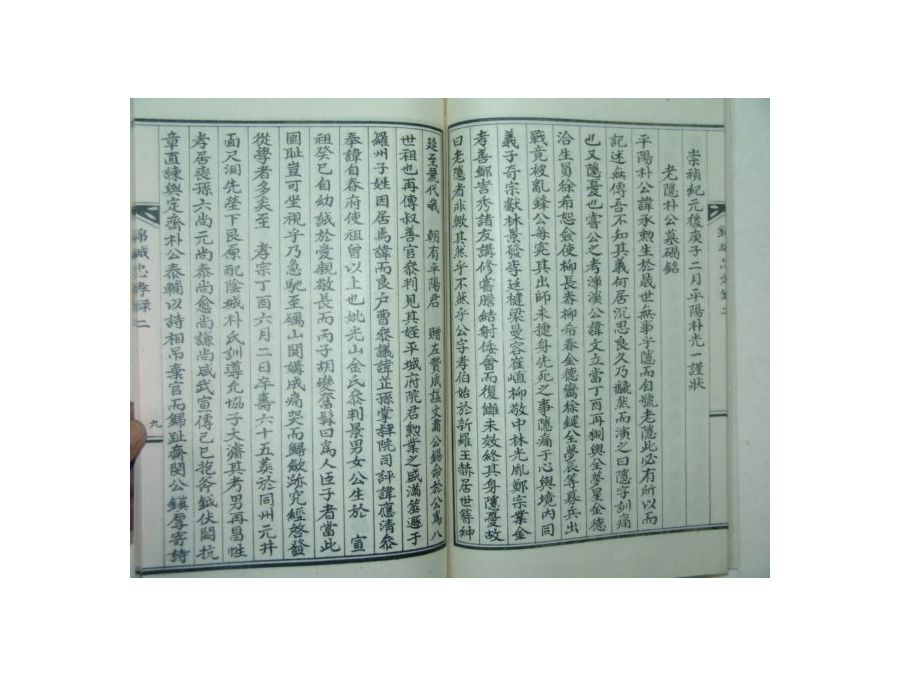 崇禎紀元後庚子二月平陽朴光一謹狀
老隱朴公墓碣銘
平陽朴公諱承勲生於盛世無事乎隱而自號老隱此必有所以而
記述無傳吾不知其義何居沉思良久乃飜然而演之曰隱字訓痛
也又隱憂也嘗公之考滄溪公諱文立當丁酉再猘與全夢星金德
洽生員徐希恕僉使柳長春柳希春金德巒徐鍵全夢辰等募兵出
戰竟被亂鋒公每寃其出師未捷身先死之事隱痛于心與境内同
義子奇宗獻林景發李廷楗梁曼容崔嵖柳敬中林光胤鄭宗業金
孝善鄭 秀諸友講修嘗膽結射倭會而復讎未效終其身隱憂故
曰老隱者非歟其然乎不然乎公字孝伯始於新羅王赫居世簪紳
延至麗代哉 朝有平陽君 贈左賛成謚文肅公錫命於公爲八
世祖也再傳叔善官叅判見其姪平城府院君勲業之盛滿 遯于
羅州子姓因居焉諱而良户曹叅議諱芷孫掌 院司評諱應清叅
奉諱自春府使祖曾以上也妣光山金氏叅判景男女公生於 宣
祖癸巳自幼誠於愛親敬長而丙子胡變奮髯曰爲人臣子者當此
國恥豈可坐視乎乃急馳至礪山聞媾成痛哭而歸斂跡究經啓發
從學者多矣至 孝宗丁酉六月二日卒壽六十五葬於同州元井
面尺洞先塋下艮原配陰城朴氏訓導允協子大濟其考男再昌性
孝居喪孫六尚元尚泰尚愈尚謙尚咸武宣傳巳巳抱斧鉞伏闕抗
章直諫與定齋朴公泰輔以詩相吊棄官而歸趾齋閔公鎭厚寄詩
錦城忠孝錄二
九